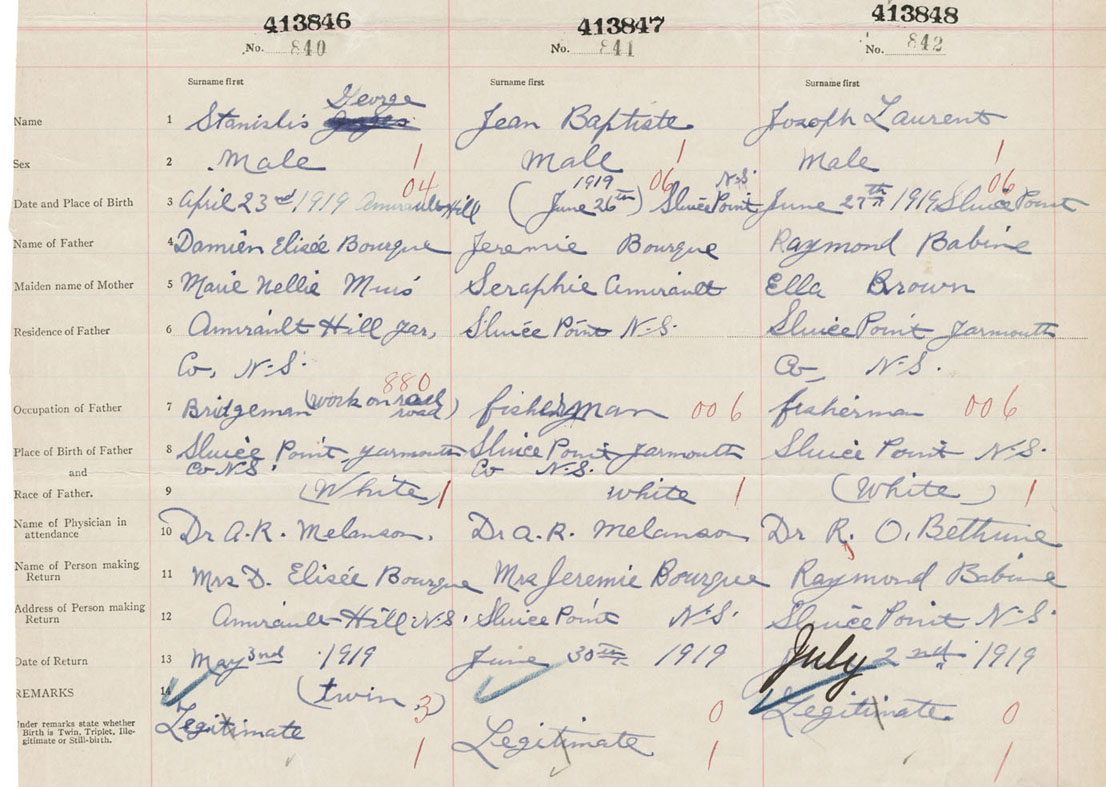 413846 413847 413848
No. 840 No. 841 No. 842
Surname first Surname first Surname first
George
Name 1 Stanislis Jean Baptiste Joseph Laurent
Sex 2 Male 1 Male 1 Male 1
04 1919 06 N.S. 06
Date and Place of Birth 3 April 23rd 1919 Amirault Hill (June 26th) Sluice Point June 27th 1919 Sluice Point
Name of Father 4 Damien Elisée Bourque Jeremie Bourque Raymond Babine
Maiden name of Mother 5 Marie Nellie Muis Seraphie Amirault Ella Brown
Residence of Father 6 Amirault Hill Yar, Sluice Point N.S. Sluice Point Yarmouth
Co, N.S. Co, N.S.
880
Occupation of Father 7 Bridgeman (work on rail road) fisherman 006 fisherman 006
Place of Birth of Father 8 Sluice Point Yarmouth Sluice Point Yarmouth Sluice Point N.S.
and Co N.S. Co N.S.
Race of Father. 9 (White) 1 white 1 (White) 1
Name of Physician in attendance 10 Dr A.R. Melanson. Dr A.R. Melanson Dr R. O. Bethune
Name of Person making Return 11 Mrs D. Elisée Bourque Mrs Jeremie Bourque Raymond Babine
Address of Person making Return 12 Amirault Hill N.S. Sluice Point N.S. Sluice Point N.S.
Date of Return 13 May 3rd 1919 June 30th 1919 July 2nd 1919
REMARKS 14 (twin) 3 0 0
Under remarks state whether Birth is Twin, Triplet, Ille-
gitimate or Still-birth. Legitimate 1 Legitimate 1 Legitimate 1